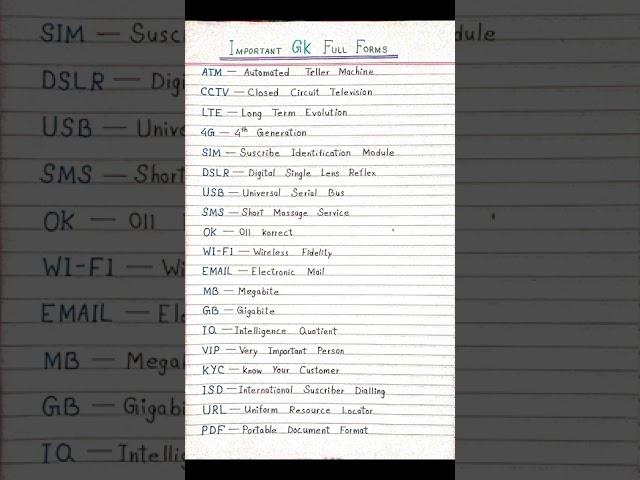 IMPORTANT GK FULL FORMS
ATM — Automated Teller Machine
CCTV — Closed Circuit Television
LTE — Long Term Evolution
4G — 4th Generation
SIM — Suscribe Identification Module
DSLR — Digital Single Lens Reflex
USB — Universal Serial Bus
SMS — Short Massage Service
OK — Oll korrect
WI-FI — Wireless Fidelity
EMAIL — Electronic Mail
MB — Megabite
GB — Gigabite
IQ — Intelligence Quotient
VIP — Very Important Person
KYC — Know Your Customer
ISD — International Suscriber Dialling
URL — Uniform Resource Locator
PDF — Portable Document Format
SIM — Susc dule
DSLR — Dig
USB — Unive
SMS — Short
OK — Oll
WI-FI — Wi
EMAIL — Ele
MB — Mega
GB — Gigabi
IQ — Intellig